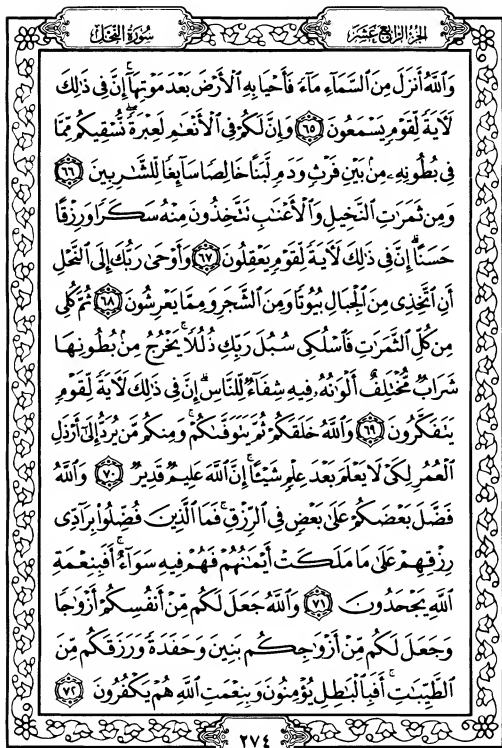 سُورَةُ النَّحْلِ
الجُزْءُ الرَّابِعَ عَشَرَ
وَٱللَّهُ أَنزَلَ مِنَ ٱلسَّمَآءِ مَآءً فَأَحْيَا بِهِ ٱلْأَرْضَ بَعْدَ مَوْتِهَآ ۚ إِنَّ فِى ذَٰلِكَ
لَأٓيَةً لِّقَوْمٍ يَسْمَعُونَ ٦٥ وَإِنَّ لَكُمْ فِى ٱلْأَنْعَٰمِ لَعِبْرَةً ۖ نُّسْقِيكُم مِّمَّا
فِى بُطُونِهِۦ مِنۢ بَيْنِ فَرْثٍ وَدَمٍ لَّبَنًا خَالِصًا سَآئِغًا لِّلشَّٰرِبِينَ ٦٦
وَمِن ثَمَرَٰتِ ٱلنَّخِيلِ وَٱلْأَعْنَٰبِ تَتَّخِذُونَ مِنْهُ سَكَرًا وَرِزْقًا
حَسَنًا ۗ إِنَّ فِى ذَٰلِكَ لَأٓيَةً لِّقَوْمٍ يَعْقِلُونَ ٦٧ وَأَوْحَىٰ رَبُّكَ إِلَى ٱلنَّحْلِ
أَنِ ٱتَّخِذِى مِنَ ٱلْجِبَالِ بُيُوتًا وَمِنَ ٱلشَّجَرِ وَمِمَّا يَعْرِشُونَ ٦٨ ثُمَّ كُلِى
مِن كُلِّ ٱلثَّمَرَٰتِ فَٱسْلُكِى سُبُلَ رَبِّكِ ذُلُلًا ۚ يَخْرُجُ مِنۢ بُطُونِهَا
شَرَابٌ مُّخْتَلِفٌ أَلْوَٰنُهُۥ فِيهِ شِفَآءٌ لِّلنَّاسِ ۗ إِنَّ فِى ذَٰلِكَ لَأٓيَةً لِّقَوْمٍ
يَتَفَكَّرُونَ ٦٩ وَٱللَّهُ خَلَقَكُمْ ثُمَّ يَتَوَفَّىٰكُمْ ۚ وَمِنكُم مَّن يُرَدُّ إِلَىٰٓ أَرْذَلِ
ٱلْعُمُرِ لِكَىْ لَا يَعْلَمَ بَعْدَ عِلْمٍ شَيْـًٔا ۚ إِنَّ ٱللَّهَ عَلِيمٌ قَدِيرٌ ٧٠ وَٱللَّهُ
فَضَّلَ بَعْضَكُمْ عَلَىٰ بَعْضٍ فِى ٱلرِّزْقِ ۚ فَمَا ٱلَّذِينَ فُضِّلُوا۟ بِرَآدِّى
رِزْقِهِمْ عَلَىٰ مَا مَلَكَتْ أَيْمَٰنُهُمْ فَهُمْ فِيهِ سَوَآءٌ ۚ أَفَبِنِعْمَةِ
ٱللَّهِ يَجْحَدُونَ ٧١ وَٱللَّهُ جَعَلَ لَكُم مِّنْ أَنفُسِكُمْ أَزْوَٰجًا
وَجَعَلَ لَكُم مِّنْ أَزْوَٰجِكُم بَنِينَ وَحَفَدَةً وَرَزَقَكُم مِّنَ
ٱلطَّيِّبَٰتِ ۚ أَفَبِٱلْبَٰطِلِ يُؤْمِنُونَ وَبِنِعْمَتِ ٱللَّهِ هُمْ يَكْفُرُونَ ٧٢
٢٧٤